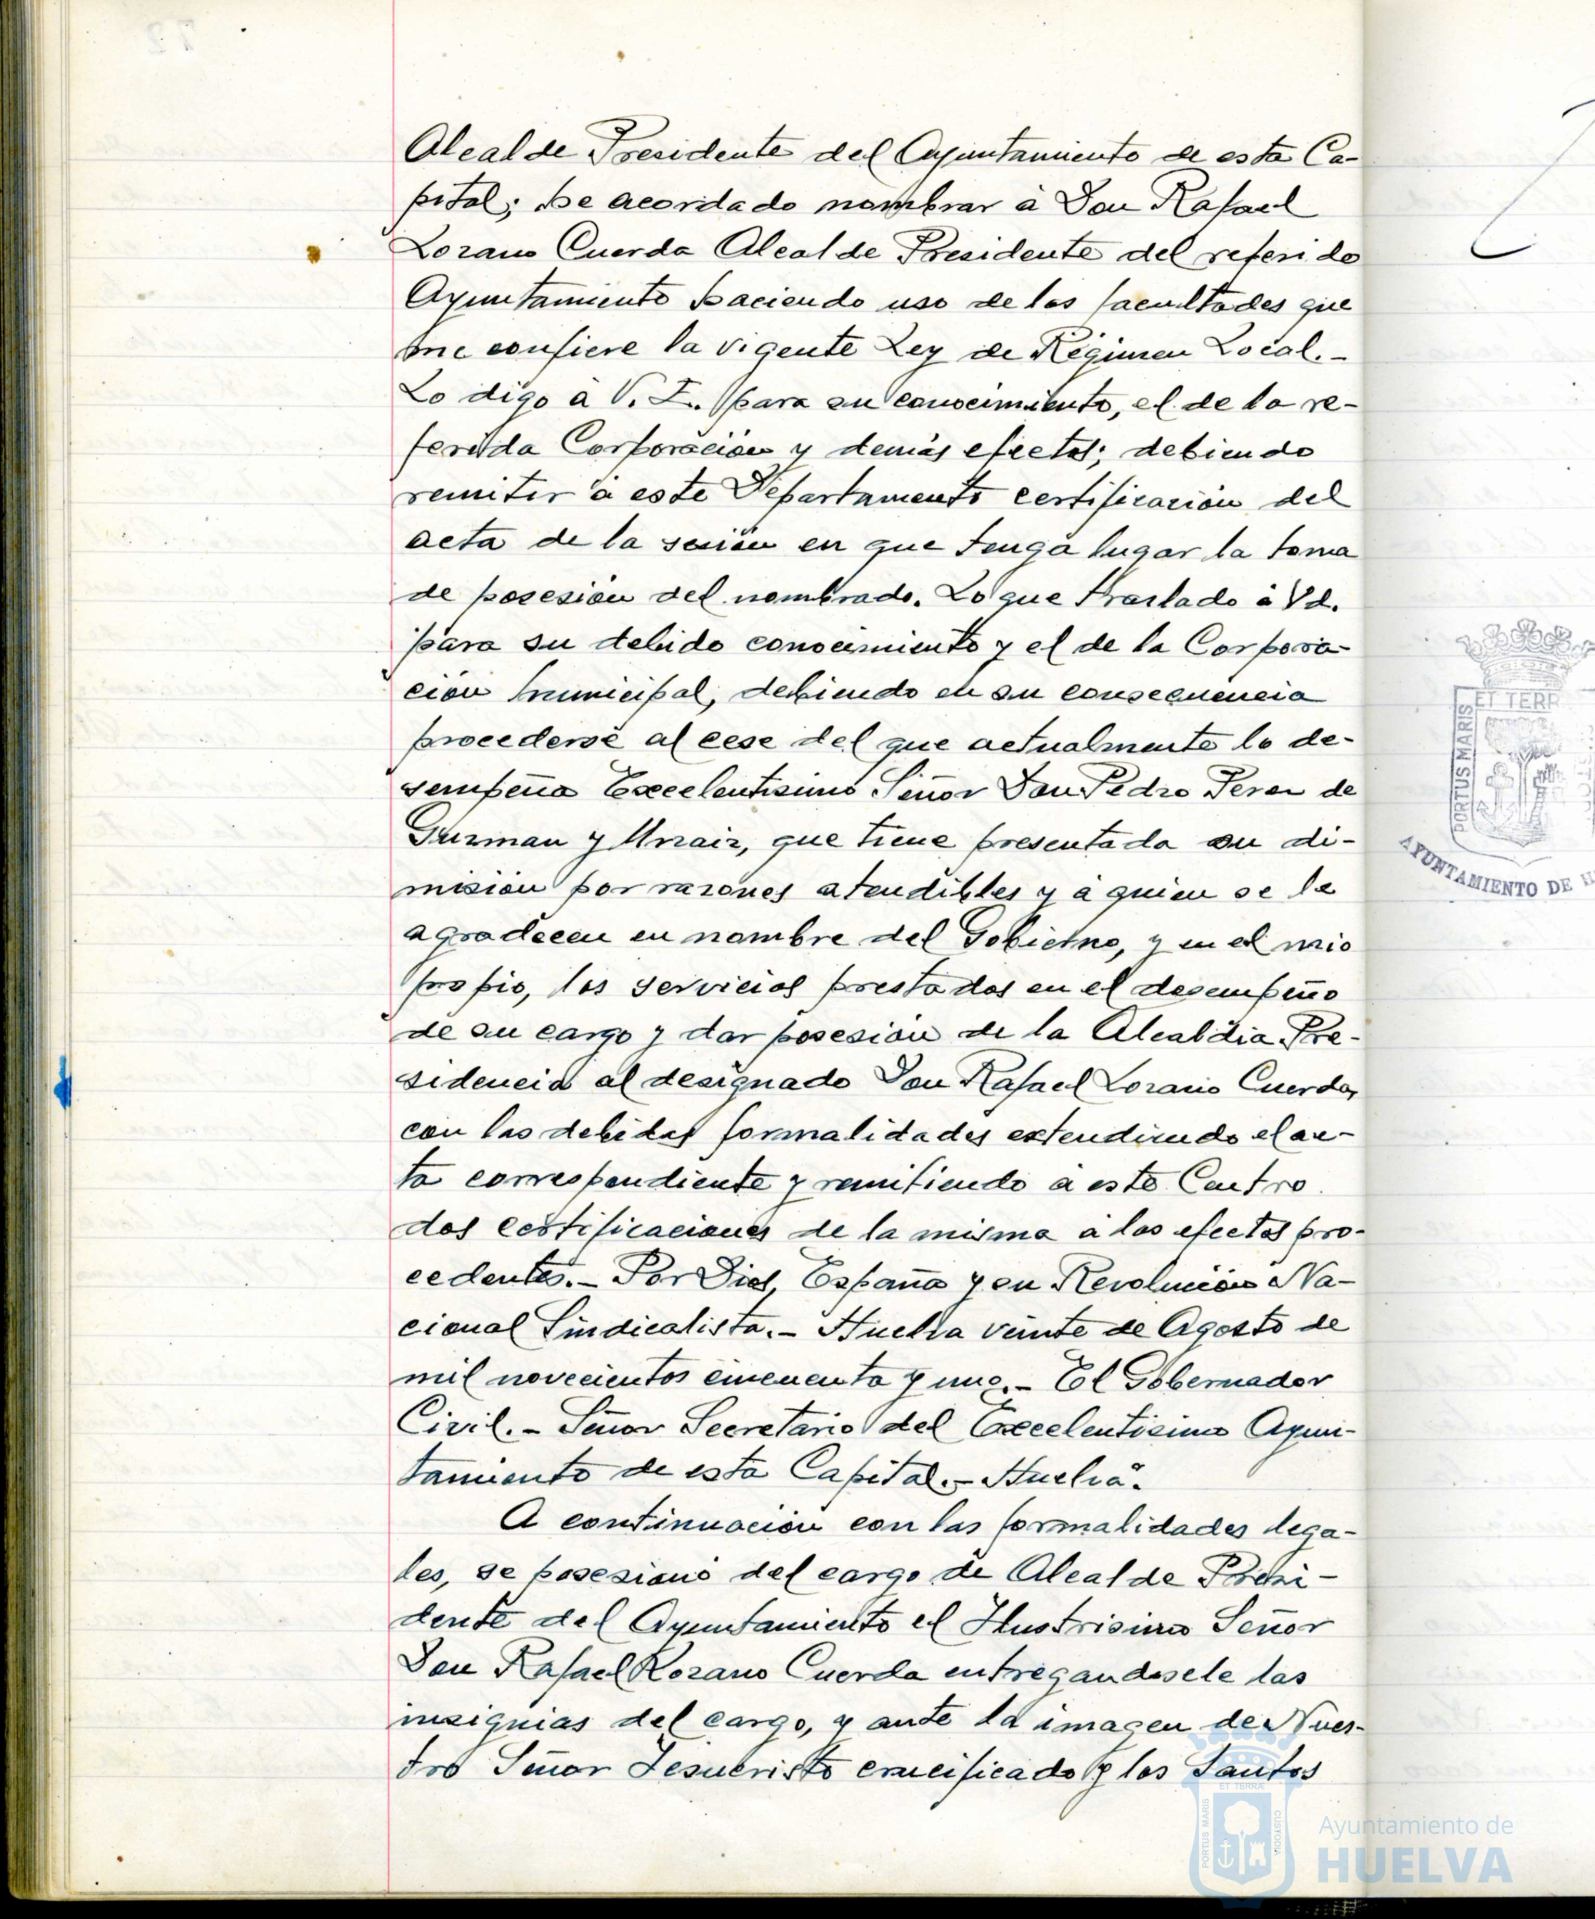 Alcalde Presidente del Ayuntamiento de esta Ca-
pital; he acordado nombrar à Don Rafael
Lozano Cuerda Alcalde Presidente del referido
Ayuntamiento haciendo uso de las facultades que
me confiere la vigente Ley de Régimen Local.-
Lo digo à V. I. para su conocimiento, el de la re-
ferida Corporación y demás efectos; debiendo
remitir à este Departamento certificación del
acta de la sesión en que tenga lugar la toma
de posesión del nombrado. Lo que traslado à Vd.
para su debido conocimiento y el de la Corpora-
ción Municipal, debiendo en su consecuencia
procederse al cese del que actualmente lo de-
sempeña Excelentisimo Señor Don Pedro Perez de
Guzman y Urzaiz, que tiene presentada su di-
misión por razones atendibles y à quien se le
agradecen en nombre del Gobierno, y en el mio
propio, los servicios prestados en el desempeño
de su cargo y dar posesión de la Alcaldia Pre-
sidencia al designado Don Rafael Lozano Cuerda,
con las debidas formalidades extendiendo el ac-
ta correspondiente y remitiendo à este Centro
dos certificaciones de la misma à los efectos pro-
cedentes.- Por Dios, España y su Revolución Na-
cional Sindicalista.- Huelva veinte de Agosto de
mil novecientos cincuenta y uno.- El Gobernador
Civil.- Señor Secretario del Excelentisimo Ayun-
tamiento de esta Capital.- Huelva".
A continuación con las formalidades lega-
les, se posesionó del cargo de Alcalde Presi-
dente del Ayuntamiento el Ilustrisimo Señor
Don Rafael Lozano Cuerda entregandosele las
insignias del cargo, y ante la imagen de Nues-
tro Señor Jesucristo crucificado y los Santos
ET TERR
PORTUS MARIS
AYUNTAMIENTO DE
PORTUS MARIS
ET TERRA
CUSTODIA
Ayuntamiento de
HUELVA